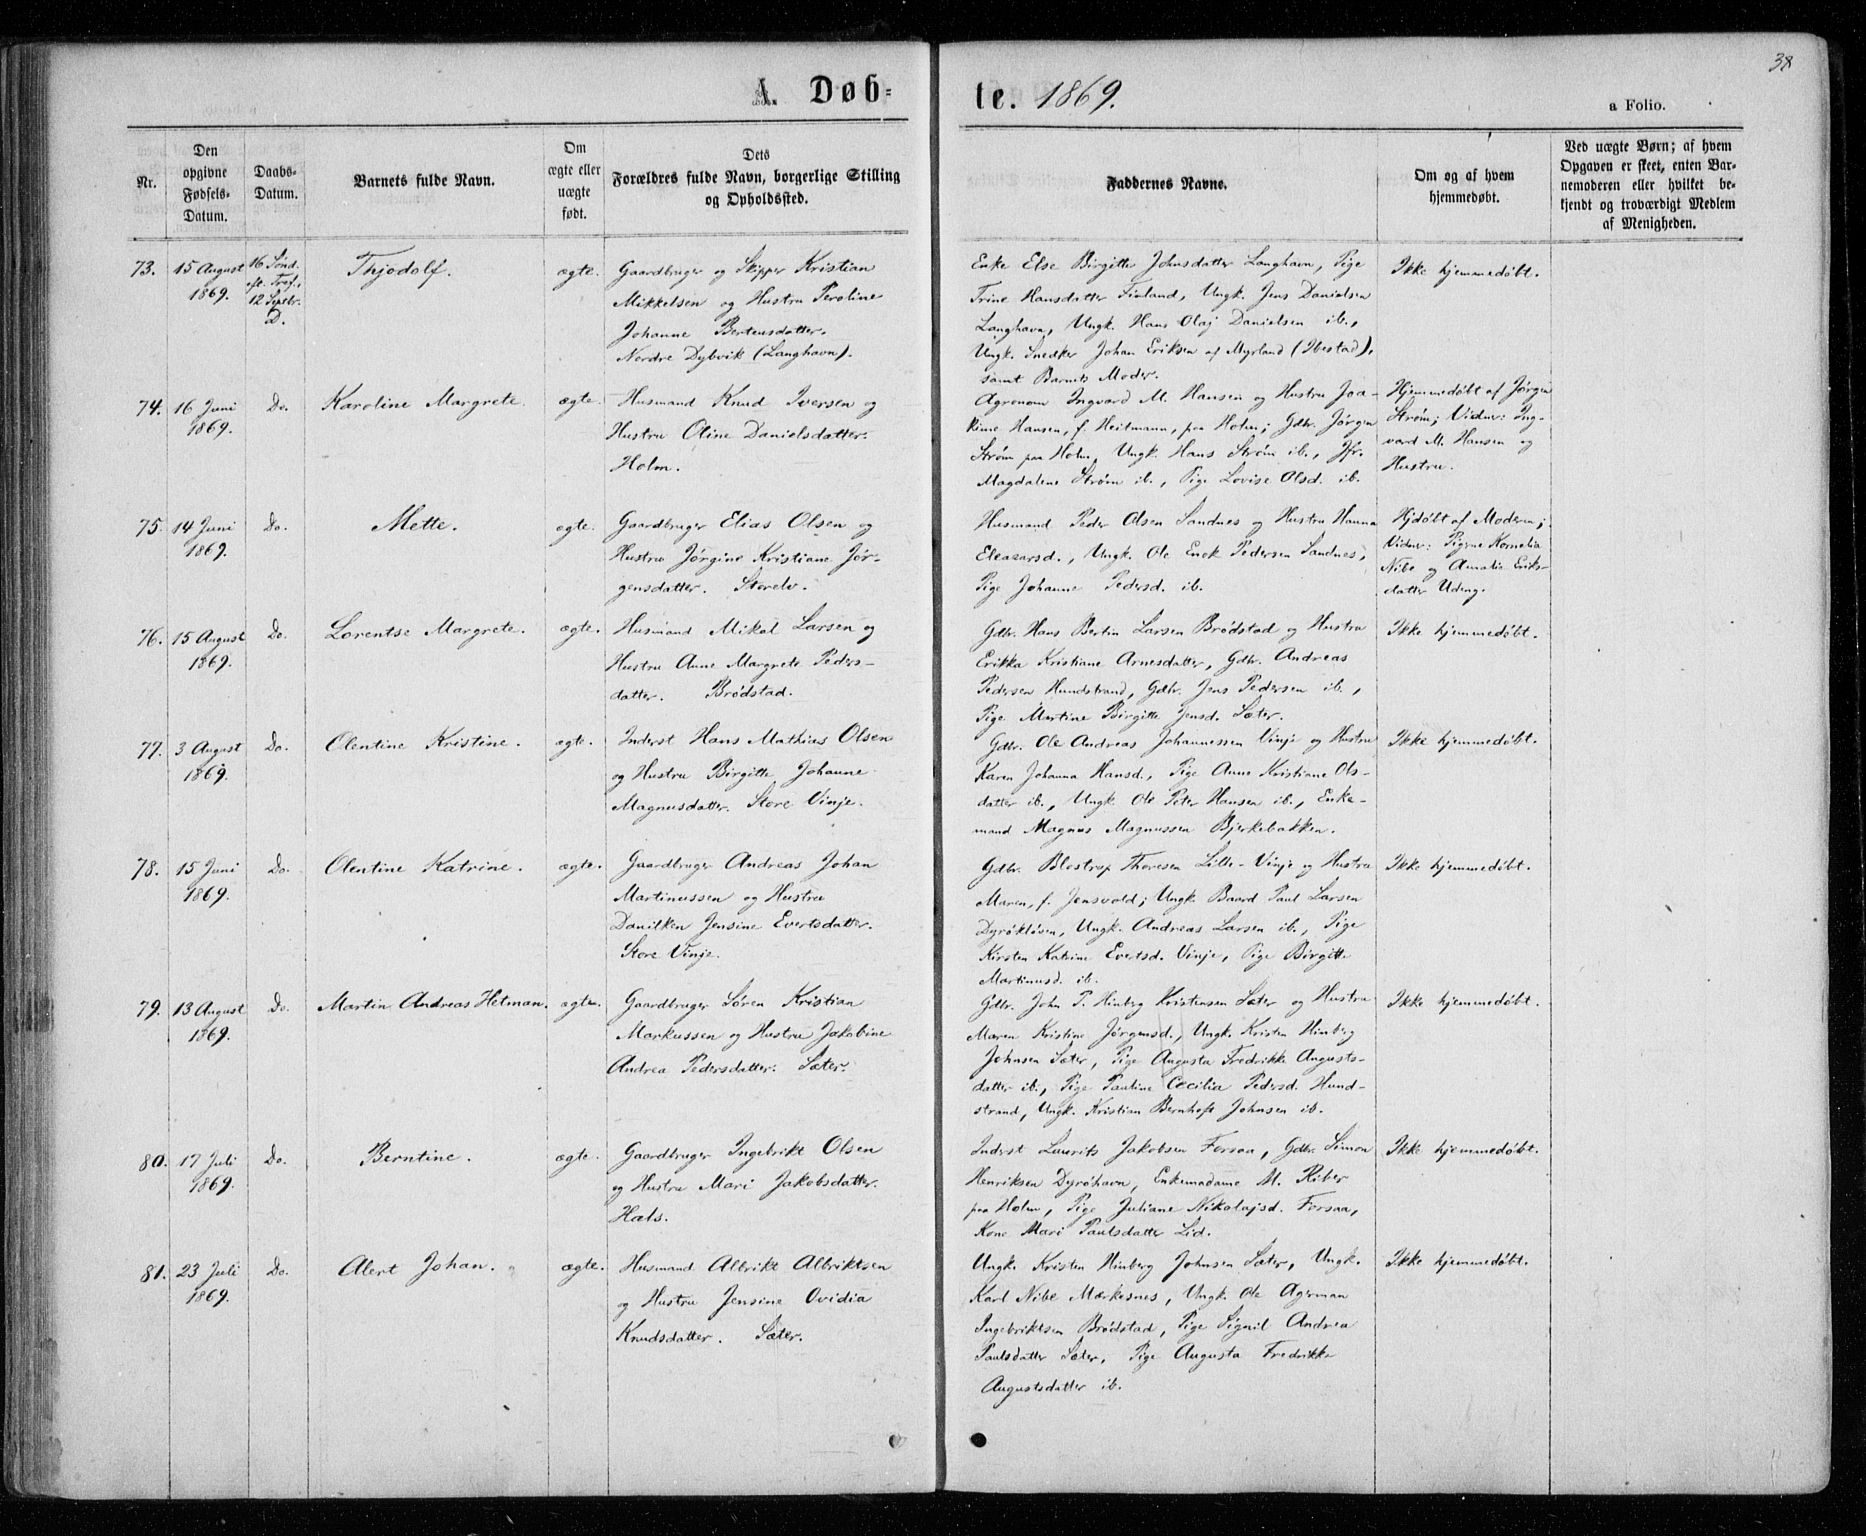 38
A. Døb=
te. 1869.
a Folio.
Nr.
Den
opgivne
Fødsels-
Datum.
Daabs-
Datum.
Barnets fulde Navn.
Om
ægte eller
uægte
født.
Dets
Forældres fulde Navn, borgerlige Stilling
og Opholdssted.
Faddernes Navne.
Om og af hvem
hjemmedøbt.
Ved uægte Børn; af hvem
Opgaven er skeet, enten Bar-
nemoderen eller hvilket be-
kjendt og troværdigt Medlem
af Menigheden.
73.
15 August
1869.
16 Sønd.
eft. Tref.,
12 Septbr.
D.
Thjodolf.
ægte.
Gaardbruger og Skipper Kristian
Mikkelsen og Hustru Peroline
Johanne Berteusdatter.
Nordre Dybvik (Langhavn).
Enke Else Birgitte Johnsdatter Langhavn, Pige
Trine Hansdatter Finland, Ungk. Jens Danielsen
Langhavn, Ungk. Hans Olaj Danielsen ib.,
Ungk. Snedker Johan Eriksen af Myrland (Ibestad),
samt Barnets Moder.
Ikke hjemmedøbt.
74.
16 Juni
1869.
Do.
Karoline Margrete.
ægte.
Husmand Knud Iversen og
Hustru Oline Danielsdatter.
Holm.
Agronom Ingvard M. Hansen og Hustru Joa-
kine Hansen, f. Heitmann, paa Holm; Gdbr. Jørgen
Strøm paa Holm, Ungk. Hans Strøm ib., Jfr.
Magdalene Strøm ib., Pige Lovise Olsd. ib.
Hjemmedøbt af Jørgen
Strøm; Vidner: Ing-
vard M. Hansen og
Hustru.
75.
14 Juni
1869.
Do.
Mette.
ægte.
Gaardbruger Elias Olsen og
Hustru Jørgine Kristiane Jør-
gensdatter. Storelv.
Husmand Peder Olsen Sandnes og Hustru Hanna
Eleazarsd., Ungk. Ole Enok Pedersen Sandnes,
Pige Johanne Pedersd. ib.
Hjdøbt af Moderen;
Vidner: Pigerne Kornelia
Nibe og Amalia Eriks-
datter Udeng.
76.
15 August
1869.
Do.
Lorentse Margrete.
ægte.
Husmand Mikal Larsen og
Hustru Anne Margrete Peders-
datter. Brødstad.
Gdbr. Hans Bertin Larsen Brødstad og Hustru
Erikka Kristiane Arnesdatter, Gdbr. Andreas
Pedersen Hundstrand, Gdbr. Jens Pedersen ib.,
Pige Martine Birgitte Jensd. Sæter.
Ikke hjemmedøbt.
77.
3 August
1869.
Do.
Olentine Kristine.
ægte.
Inderst Hans Mathias Olsen
og Hustru Birgitte Johanne
Magnusdatter. Store Vinje.
Gdbr. Ole Andreas Johannessen Vinje og Hustru
Karen Johanna Hansd., Pige Anne Kristiane Ols-
datter ib., Ungk. Ole Peter Hansen ib., Enke-
mand Magnus Magnussen Bjerkebakken.
Ikke hjemmedøbt.
78.
15 Juni
1869.
Do.
Olentine Katrine.
ægte.
Gaardbruger Andreas Johan
Martinussen og Hustru
Danilken Jensine Evertsdatter.
Store Vinje.
Gdbr. Blostrup Thoresen Lille-Vinje og Hustru
Maren, f. Jensvold; Ungk. Baard Paul Larsen
Dyrøkløven, Ungk. Andreas Larsen ib., Pige
Kirsten Katrine Evertsd. Vinje, Pige Birgitte
Martinusd. ib.
Ikke hjemmedøbt.
79.
13 August
1869.
Do.
Martin Andreas Hetman.
ægte.
Gaardbruger Søren Kristian
Markussen og Hustru Jakobine
Andrea Pedersdatter. Sæter.
Gdbr. John P. Hinberg Kristensen Sæter og Hustru
Maren Kristine Jørgensd., Ungk. Kristen Hinberg
Johnsen Sæter, Pige Augusta Fredrikke Augusts-
datter ib., Pige Pauline Cecilia Pedersd. Hund-
strand, Ungk. Kristian Bernhoft Johnsen ib.
Ikke hjemmedøbt.
80.
17 Juli
1869.
Do.
Berntine.
ægte.
Gaardbruger Ingebrikt Olsen
og Hustru Mari Jakobsdatter.
Hals.
Inderst Laurits Jakobsen Forsaa, Gdbr. Simon
Henriksen Dyrøhavn, Enkemadame M. Riber
paa Holm, Pige Juliane Nikolajsd. Forsaa,
Kone Mari Paulsdatter Lid.
Ikke hjemmedøbt.
81.
23 Juli
1869.
Do.
Alert Johan.
ægte.
Husmand Albrikt Albriktsen
og Hustru Jensine Ovidia
Knudsdatter. Sæter.
Ungk. Kristen Hinberg Johnsen Sæter, Ungk.
Karl Nibe Mærkesnes, Ungk. Ole Agerman
Ingebriktsen Brødstad, Pige Signil Andrea
Paulsdatter Sæter, Pige Augusta Fredrikke
Augustsdatter ib.
Ikke hjemmedøbt.